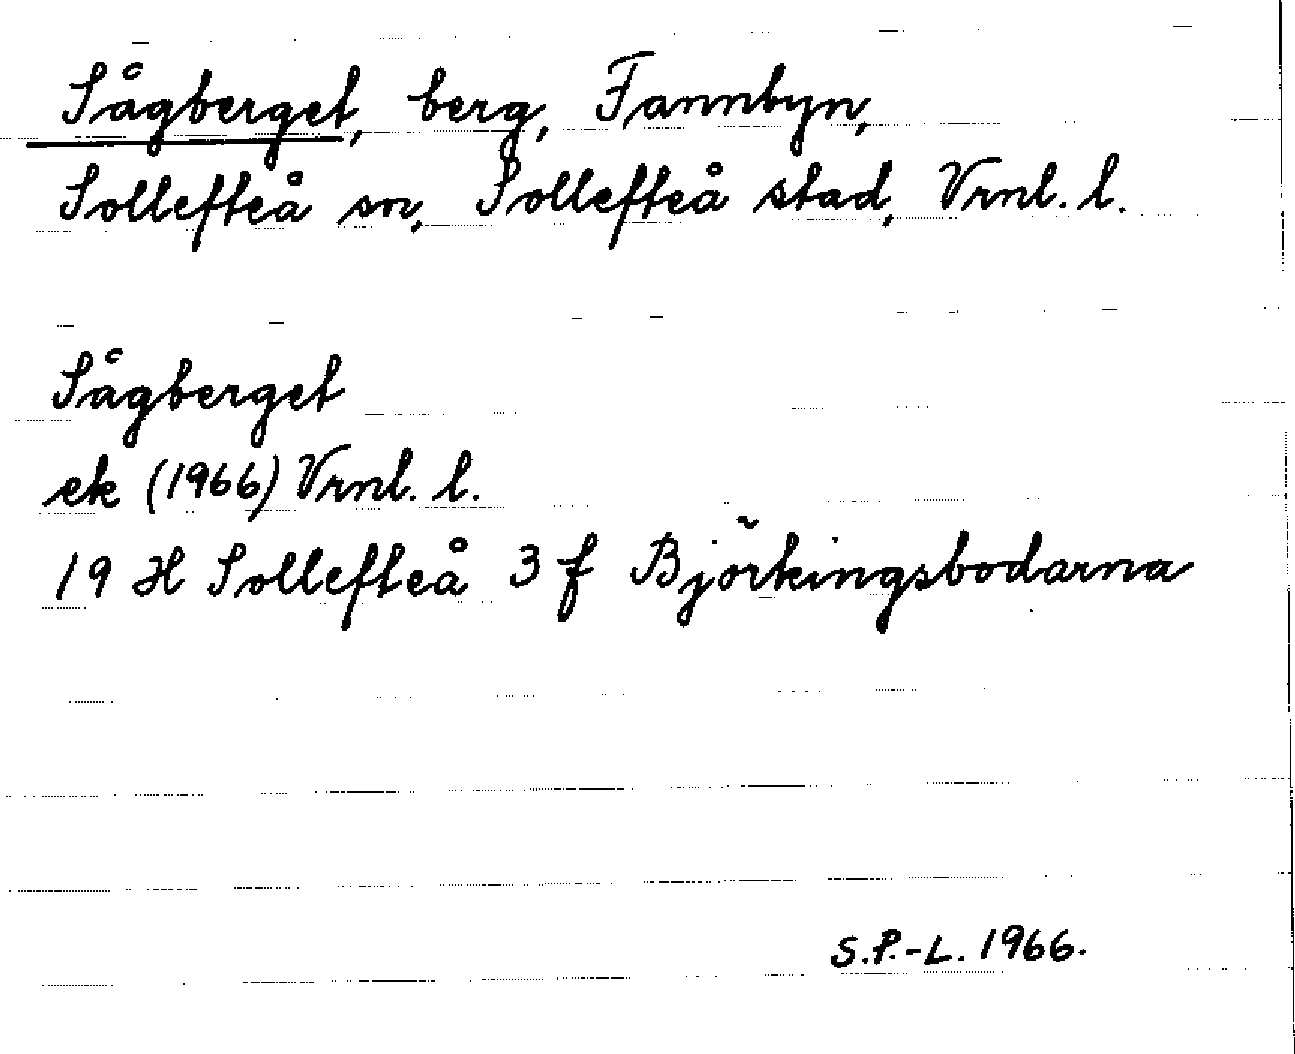 Sågberget, berg, Fannbyn,
Sollefteå sn, Sollefteå stad, Vrnl. l.
Sågberget
ek (1966) Vrnl. l.
19 H Sollefteå 3 f Björkingsbodarna
S.P.-L. 1966.